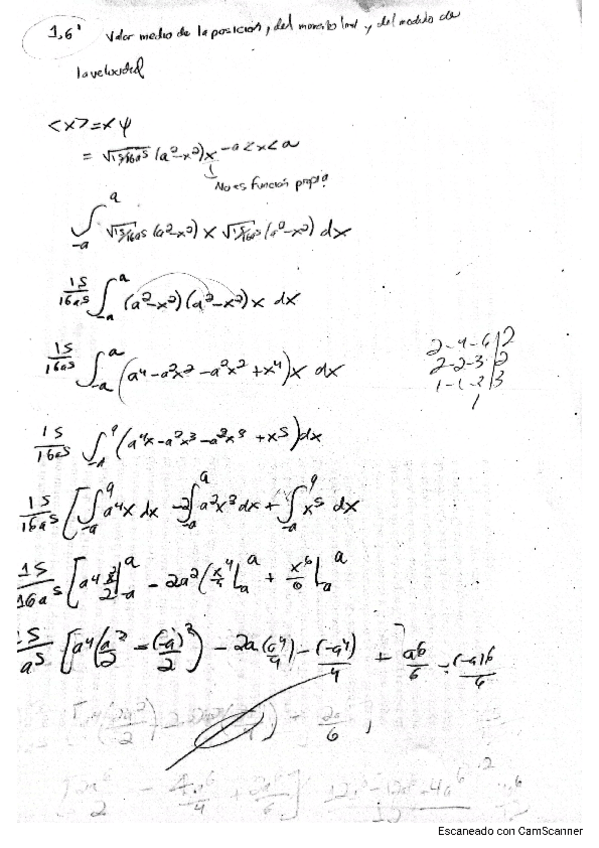 1.6' Valor medio de la posicion, del momento lineal y del modulo de
la velocidad
<x> = x ψ
= √15/16a⁵ (a²-x²) x -a<x<a
No es función propia
∫₋ₐᵃ √15/16a⁵ (a²-x²) x √15/16a⁵ (a²-x²) dx
15/16a⁵ ∫₋ₐᵃ (a²-x²)(a²-x²)x dx
2-4-6|2
15/16a⁵ ∫₋ₐᵃ (a⁴-a²x²-a²x²+x⁴)x dx
2-2-3|2
1-1-3|3
1
15/16a⁵ ∫₋ₐᵃ (a⁴x-a²x³-a²x³+x⁵)dx
15/16a⁵ [∫₋ₐᵃ a⁴x dx -2∫₋ₐᵃ a²x³dx + ∫₋ₐᵃ x⁵ dx
15/16a⁵ [a⁴ x²/2|₋ₐᵃ - 2a² (x⁴/4|₋ₐᵃ + x⁶/6|₋ₐᵃ
15/a⁵ [a⁴(a²/2 - (-a)²/2) - 2a(a⁴/4) - (-a⁴)/4 + a⁶/6 - (-a)⁶/6
Escaneado con CamScanner